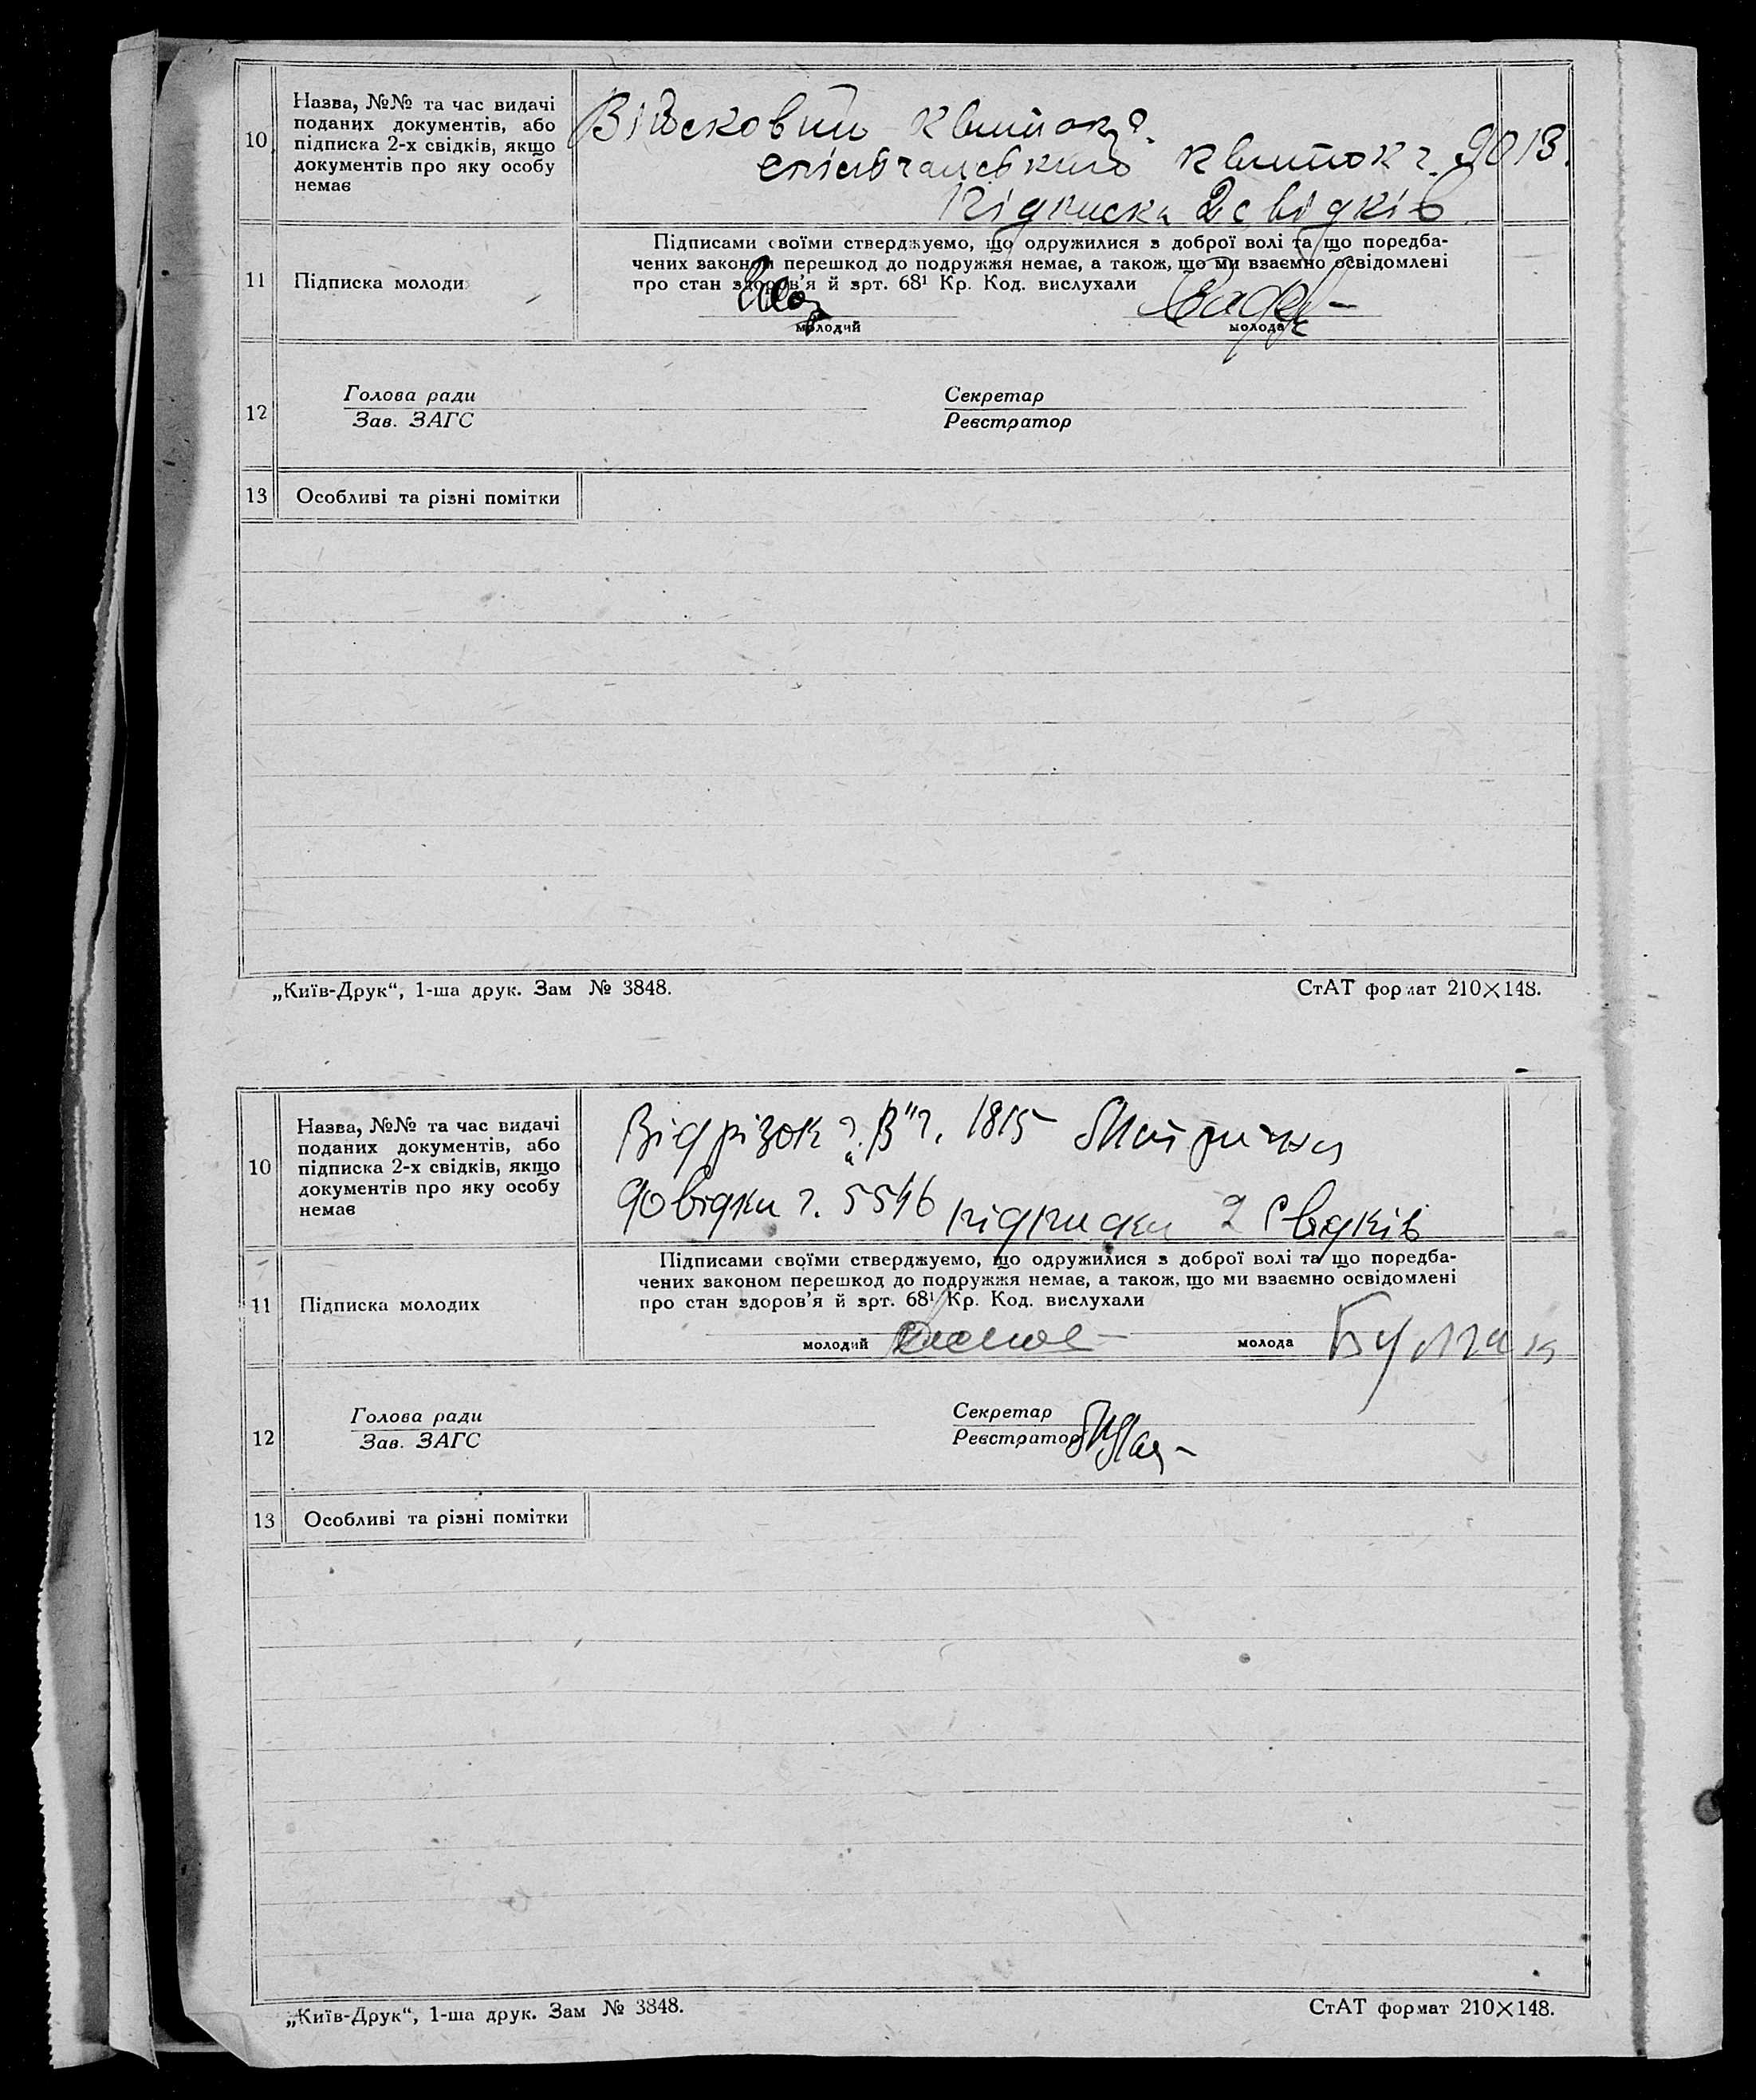 10
Назва, №№ та час видачі
поданих документів, або
підписка 2-х свідків, якщо
документів про яку особу
немає
Військовий квиток
квиток ч. 9013.
Підписка 2 свідків
11
Підписка молоди
Підписами своїми стверджуємо, що одружилися з доброї волі та що поредба-
чених законом перешкод до подружжя немає, а також, що ми взаємно освідомлені
про стан здоров'я й арт. 68¹ Кр. Код. вислухали
молодий
молода
12
Голова ради
Зав. ЗАГС
Секретар
Реєстратор
13
Особливі та різні помітки
„Київ-Друк“, 1-ша друк. Зам № 3848.
СтАТ формат 210×148.
10
Назва, №№ та час видачі
поданих документів, або
підписка 2-х свідків, якщо
документів про яку особу
немає
Відрізок ч. „В“ ч. 1815 Метрична
довідки ч. 5546 підписка 2 свідків
11
Підписка молодих
Підписами своїми стверджуємо, що одружилися з доброї волі та що поредба-
чених законом перешкод до подружжя немає, а також, що ми взаємно освідомлені
про стан здоров'я й арт. 68¹ Кр. Код. вислухали
молодий
молода
12
Голова ради
Зав. ЗАГС
Секретар
Реєстратор
13
Особливі та різні помітки
„Київ-Друк“, 1-ша друк. Зам № 3848.
СтАТ формат 210×148.